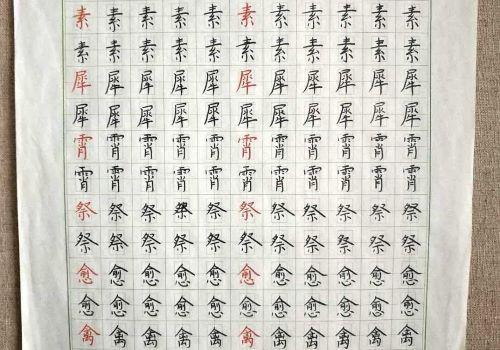 素素素素素素素素素素素
素素素素素素素素素素素
犀犀犀犀犀犀犀犀犀犀犀
犀犀犀犀犀犀犀犀犀犀犀
霄霄霄霄霄霄霄霄霄霄霄
霄霄霄霄霄霄霄霄霄霄霄
祭祭祭祭祭祭祭祭祭祭祭
祭祭祭祭祭祭祭祭祭祭祭
愈愈愈愈愈愈愈愈愈愈愈
愈愈愈愈愈愈愈愈愈愈愈
禽禽禽禽禽禽禽禽禽禽禽